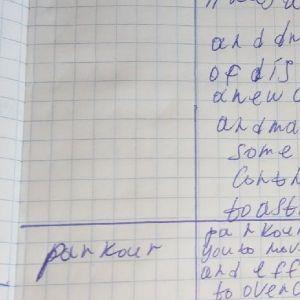 and dr
of dis
a new c
and ma
some
Contr
to ast
parkour
parkour
you to mov
and eff
to overc